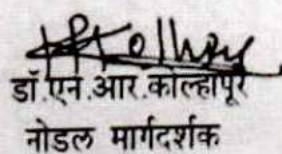 डॉ.एन.आर.कोल्हापूरे
नोडल मार्गदर्शक